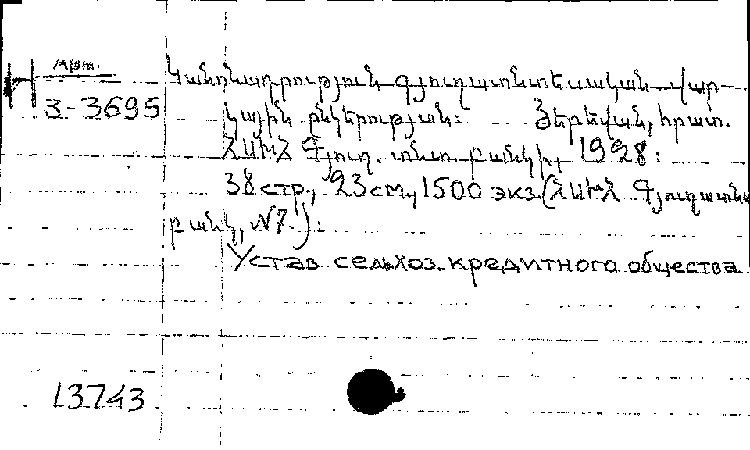 Արտ.
Н
3-3695
Կանոնադրություն գյուղատնտեսական վար-
կային ընկերության: Յերեվան, հրատ.
ՀՍԽՀ Գյուղ. տնտ. բանկի, 1928:
38 стр., 23 см, 1500 экз. (ՀՍԽՀ Գյուղատնտ
բանկ, №7.):
Устав сельхоз. кредитного общества
13743